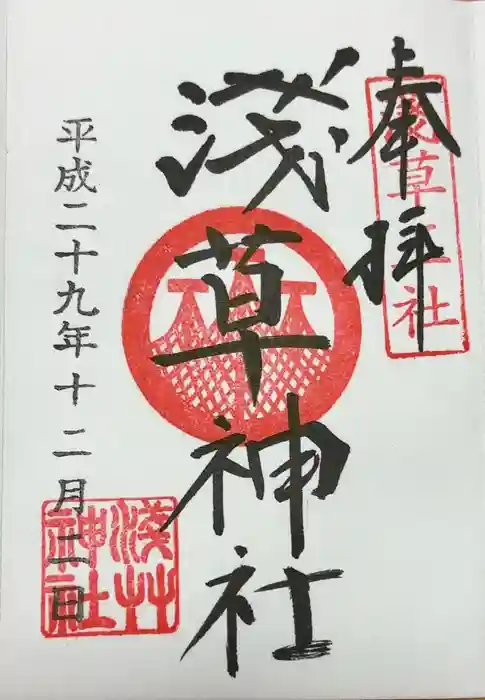 奉拝
淺草神社
淺草神社
平成二十九年十二月二日
淺草神社